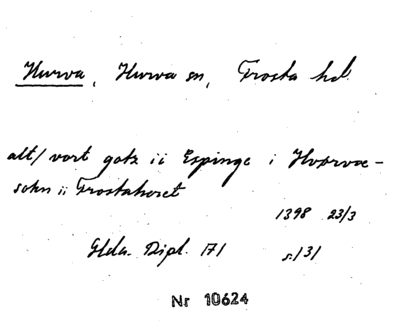 Hurva, Hurva sn, Frosta hd.
alt/ vort gotz ii Espinge i Hvørvæ-
sokn ii Frostahæret
1398 23/3
Glda. Dipl. 171 s. 131
Nr 10624